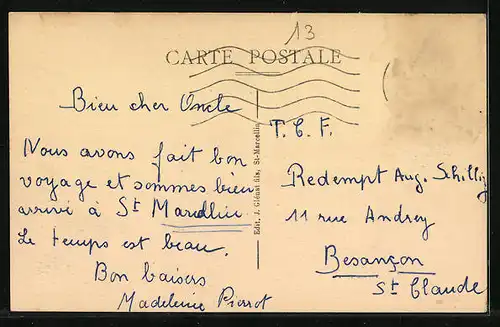 13
CARTE POSTALE
Bien cher Oncle
Nous avons fait bon
voyage et sommes bien
arrivé à St Marcellin
Le temps est beau.
Bon baisers
Madeleine Pierrot
Edit. J. Clénat fils, St-Marcellin
T. C. F.
Redempt Aug. Schillig
11 rue Andrey
Besançon
St Claude